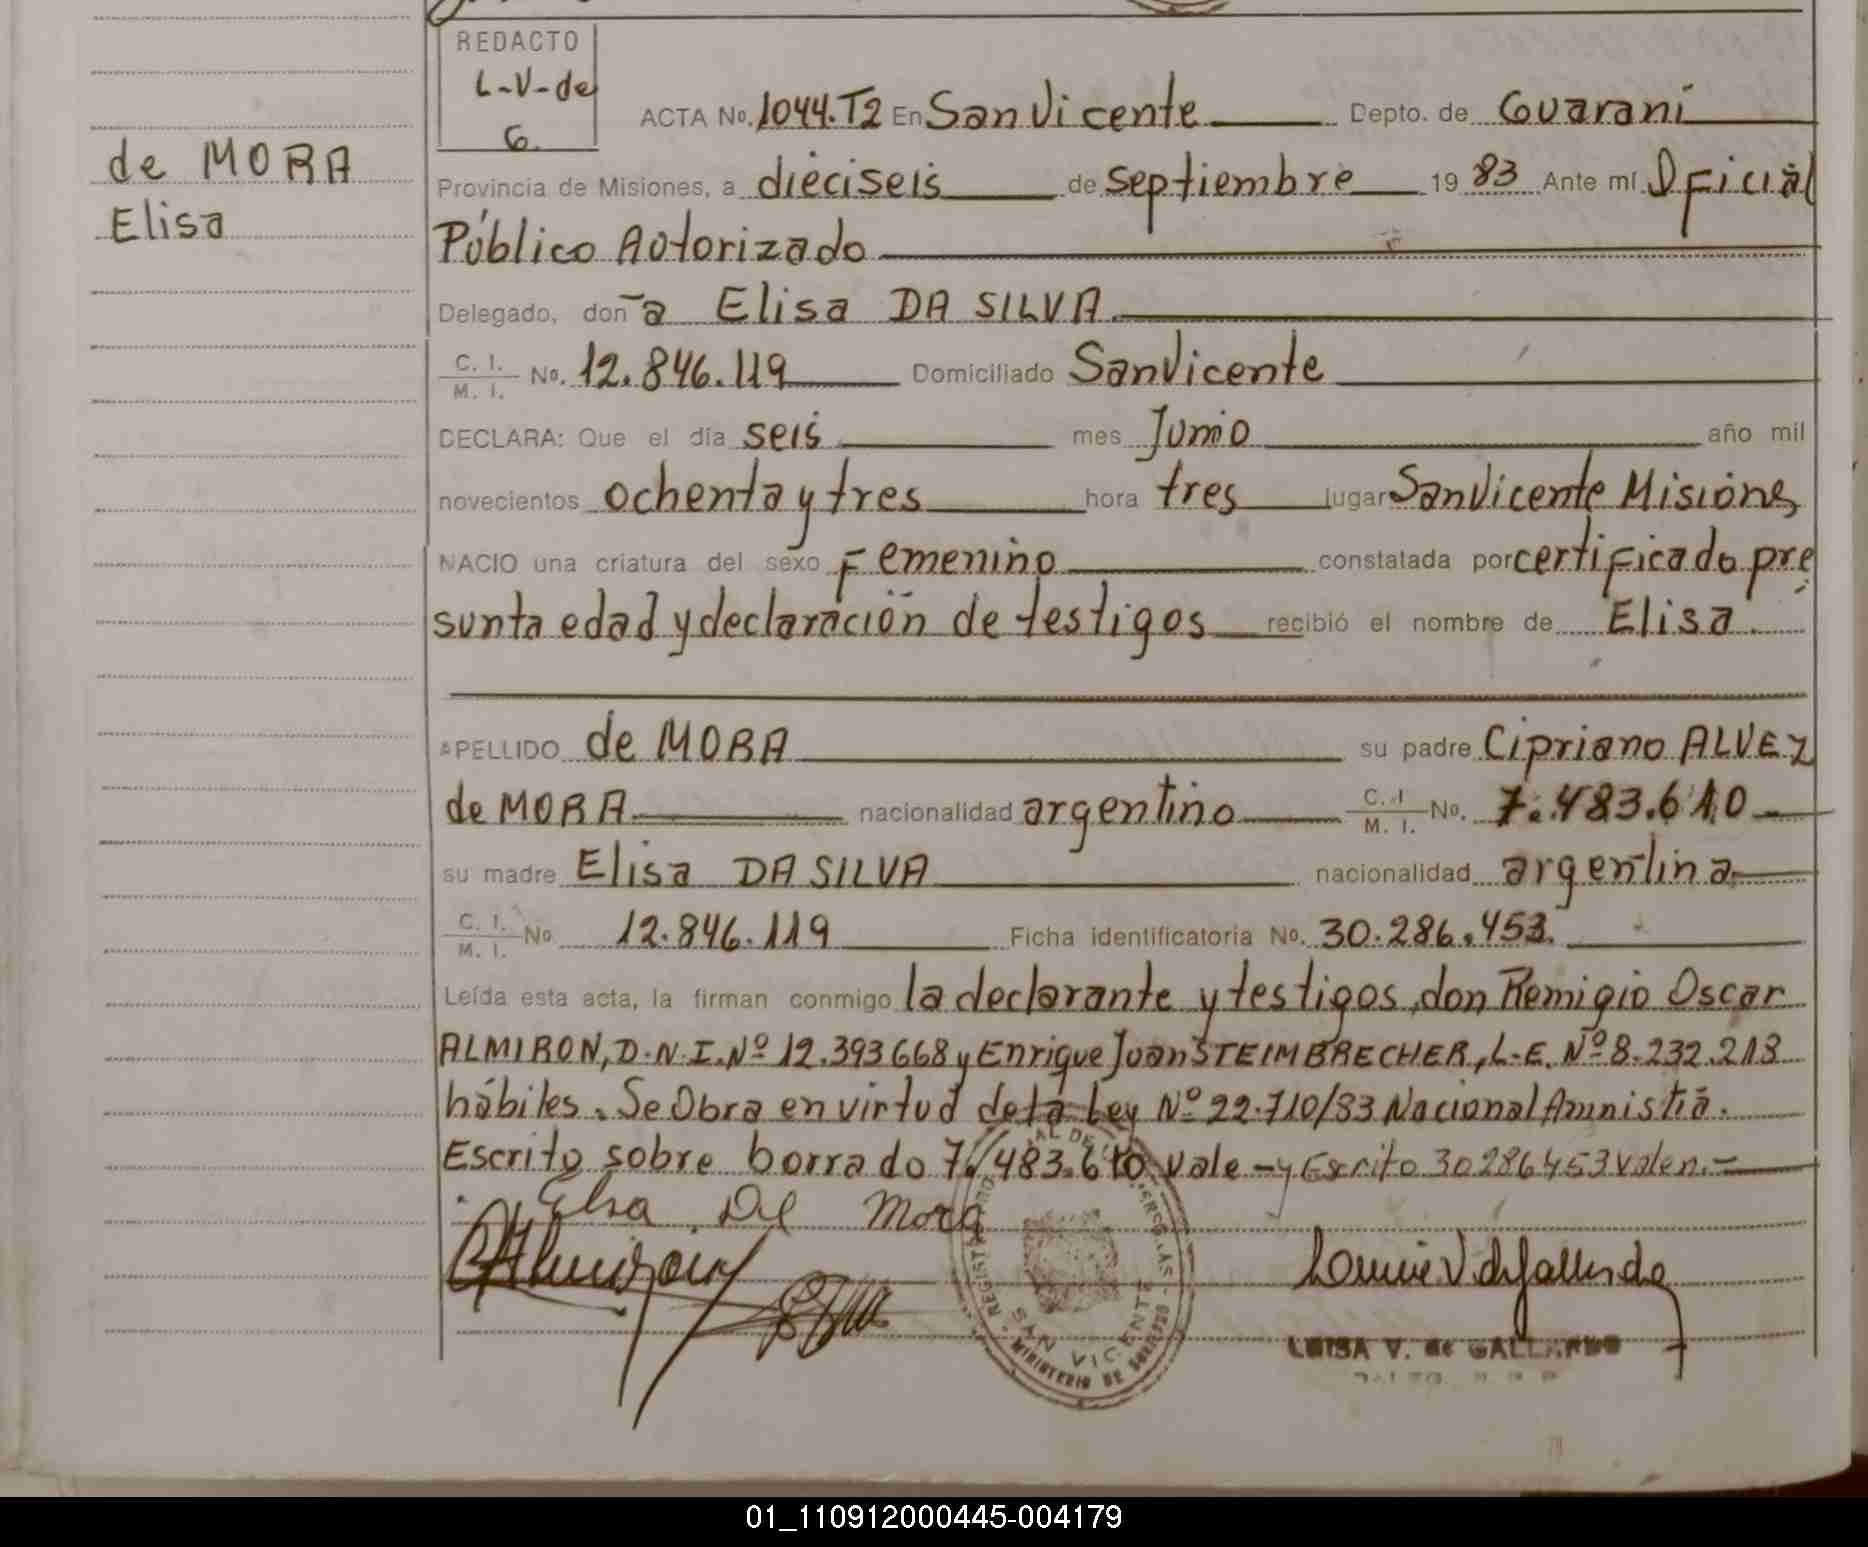 REDACTO
L-V-de
G.
ACTA No. 1044.T2 En San Vicente Depto. de Guaraní
de MORA
Elisa
Provincia de Misiones, a dieciseis de septiembre 19 83 Ante mí Oficial
Público Autorizado
Delegado, doña Elisa DA SILVA
C. I. M. I. No. 12.846.119 Domiciliado San Vicente
DECLARA: Que el día seis mes Junio año mil
novecientos ochenta y tres hora tres lugar San Vicente Misiones
NACIO una criatura del sexo Femenino constatada por certificado pre
sunta edad y declaración de testigos recibió el nombre de Elisa
APELLIDO de MORA su padre Cipriano ALVEZ
de MORA nacionalidad argentino C. I M. I. No. 7.483.610
su madre Elisa DA SILVA nacionalidad argentina
C. I. M. I. No 12.846.119 Ficha identificatoria No. 30.286.453.
Leída esta acta, la firman conmigo la declarante y testigos, don Remigio Oscar
ALMIRON, D.N.I. Nº 12.393668 y Enrique Juan STEIMBRECHER, L.E. Nº 8.232.213
hábiles. Se Obra en virtud de la Ley Nº 22.710/83 Nacional Amnistiá.
Escrito sobre borrado 7.483.610 vale - y Escrito 30286453 valen.-
Elsa De Mora
SAN VICENTE
MINISTERIO DE
LUISA V. de GALLARDO
01_110912000445-004179